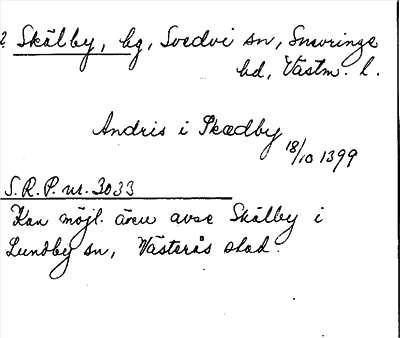 ? Skälby, by, Svedvi sn, Snevringe
hd, Västm. l.
Andris i Skædby
18/10 1399
S.R.P. nr. 3033
Kan möjl. även avse Skälby i
Lundby sn, Västerås stad.